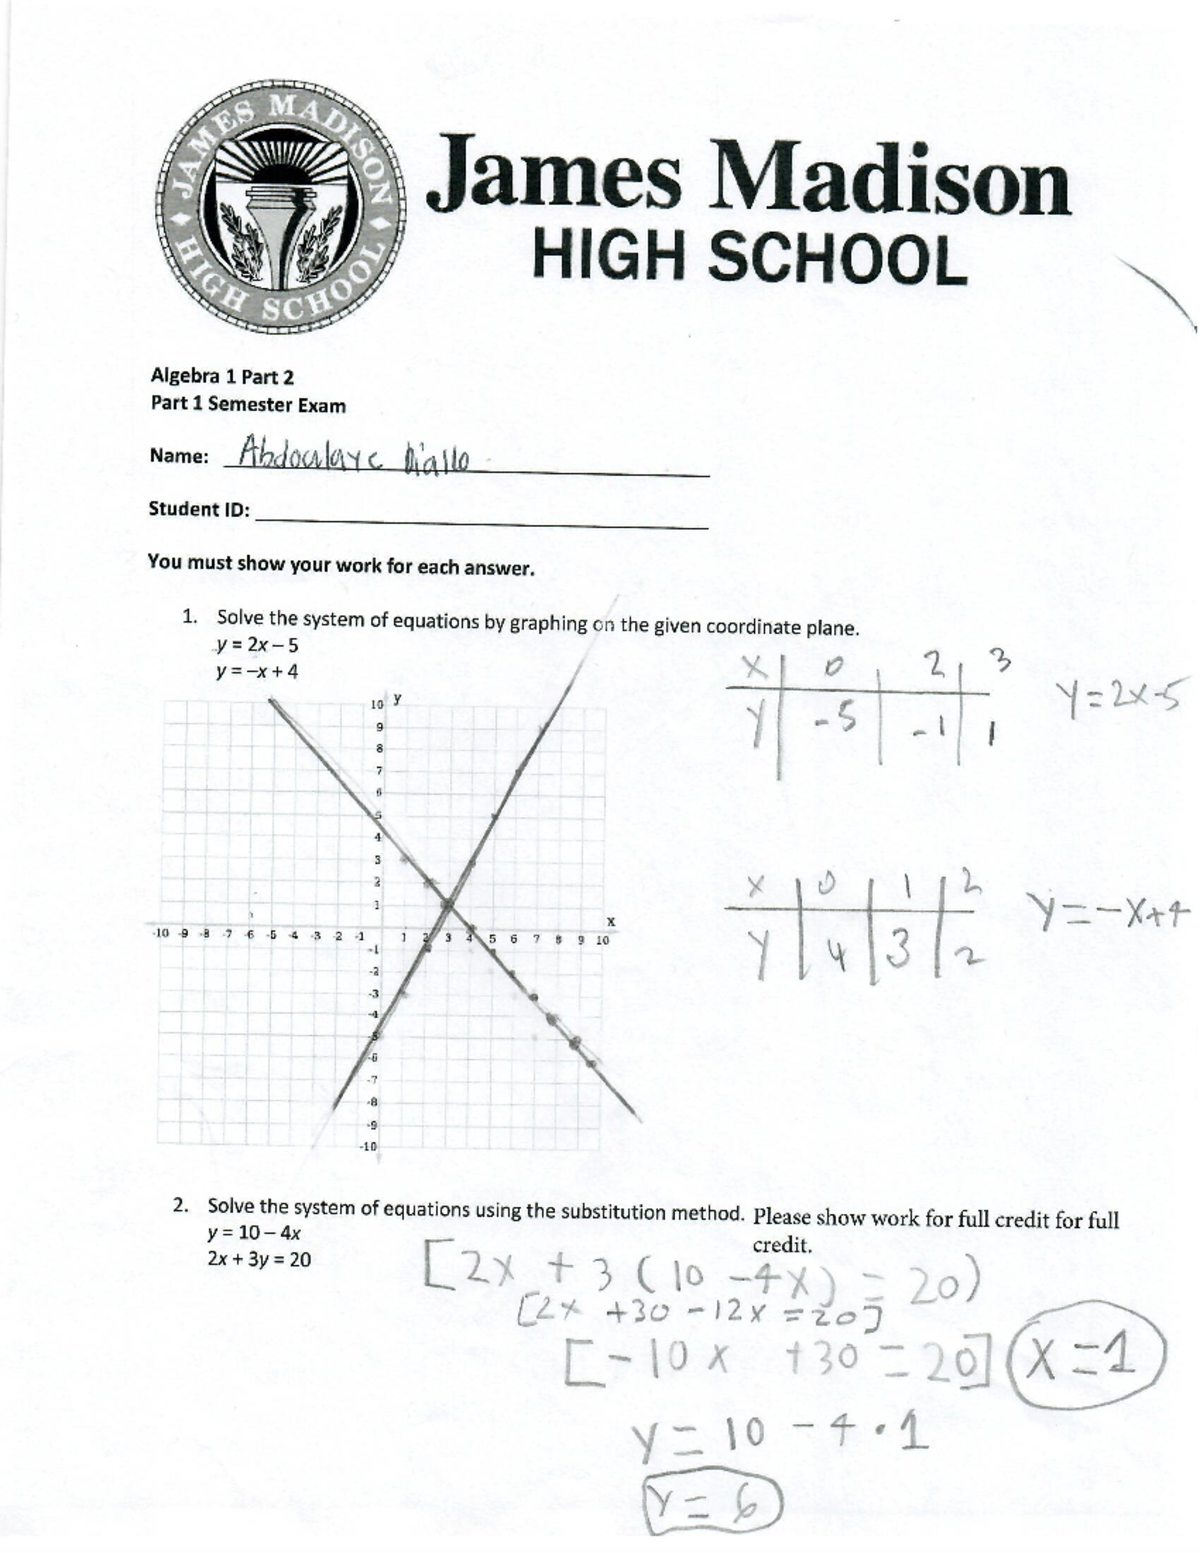 JAMES MADISON
HIGH SCHOOL
James Madison
HIGH SCHOOL
Algebra 1 Part 2
Part 1 Semester Exam
Name: Abdoulaye Diallo
Student ID:
You must show your work for each answer.
1. Solve the system of equations by graphing on the given coordinate plane.
y = 2x – 5
y = –x + 4
x | 0 | 2 | 3
y | -5 | -1 | 1
y=2x-5
x | 0 | 1 | 2
y | 4 | 3 | 2
y=-x+4
y
10
9
8
7
6
5
4
3
2
1
x
-10 -9 -8 -7 -6 -5 -4 -3 -2 -1 1 2 3 4 5 6 7 8 9 10
-1
-2
-3
-4
-5
-6
-7
-8
-9
-10
2. Solve the system of equations using the substitution method. Please show work for full credit for full
credit.
y = 10 – 4x
2x + 3y = 20
[2x + 3(10 -4x) = 20)
[2x +30 -12x =20]
[-10x +30 = 20] x=1
y= 10 - 4 • 1
y= 6